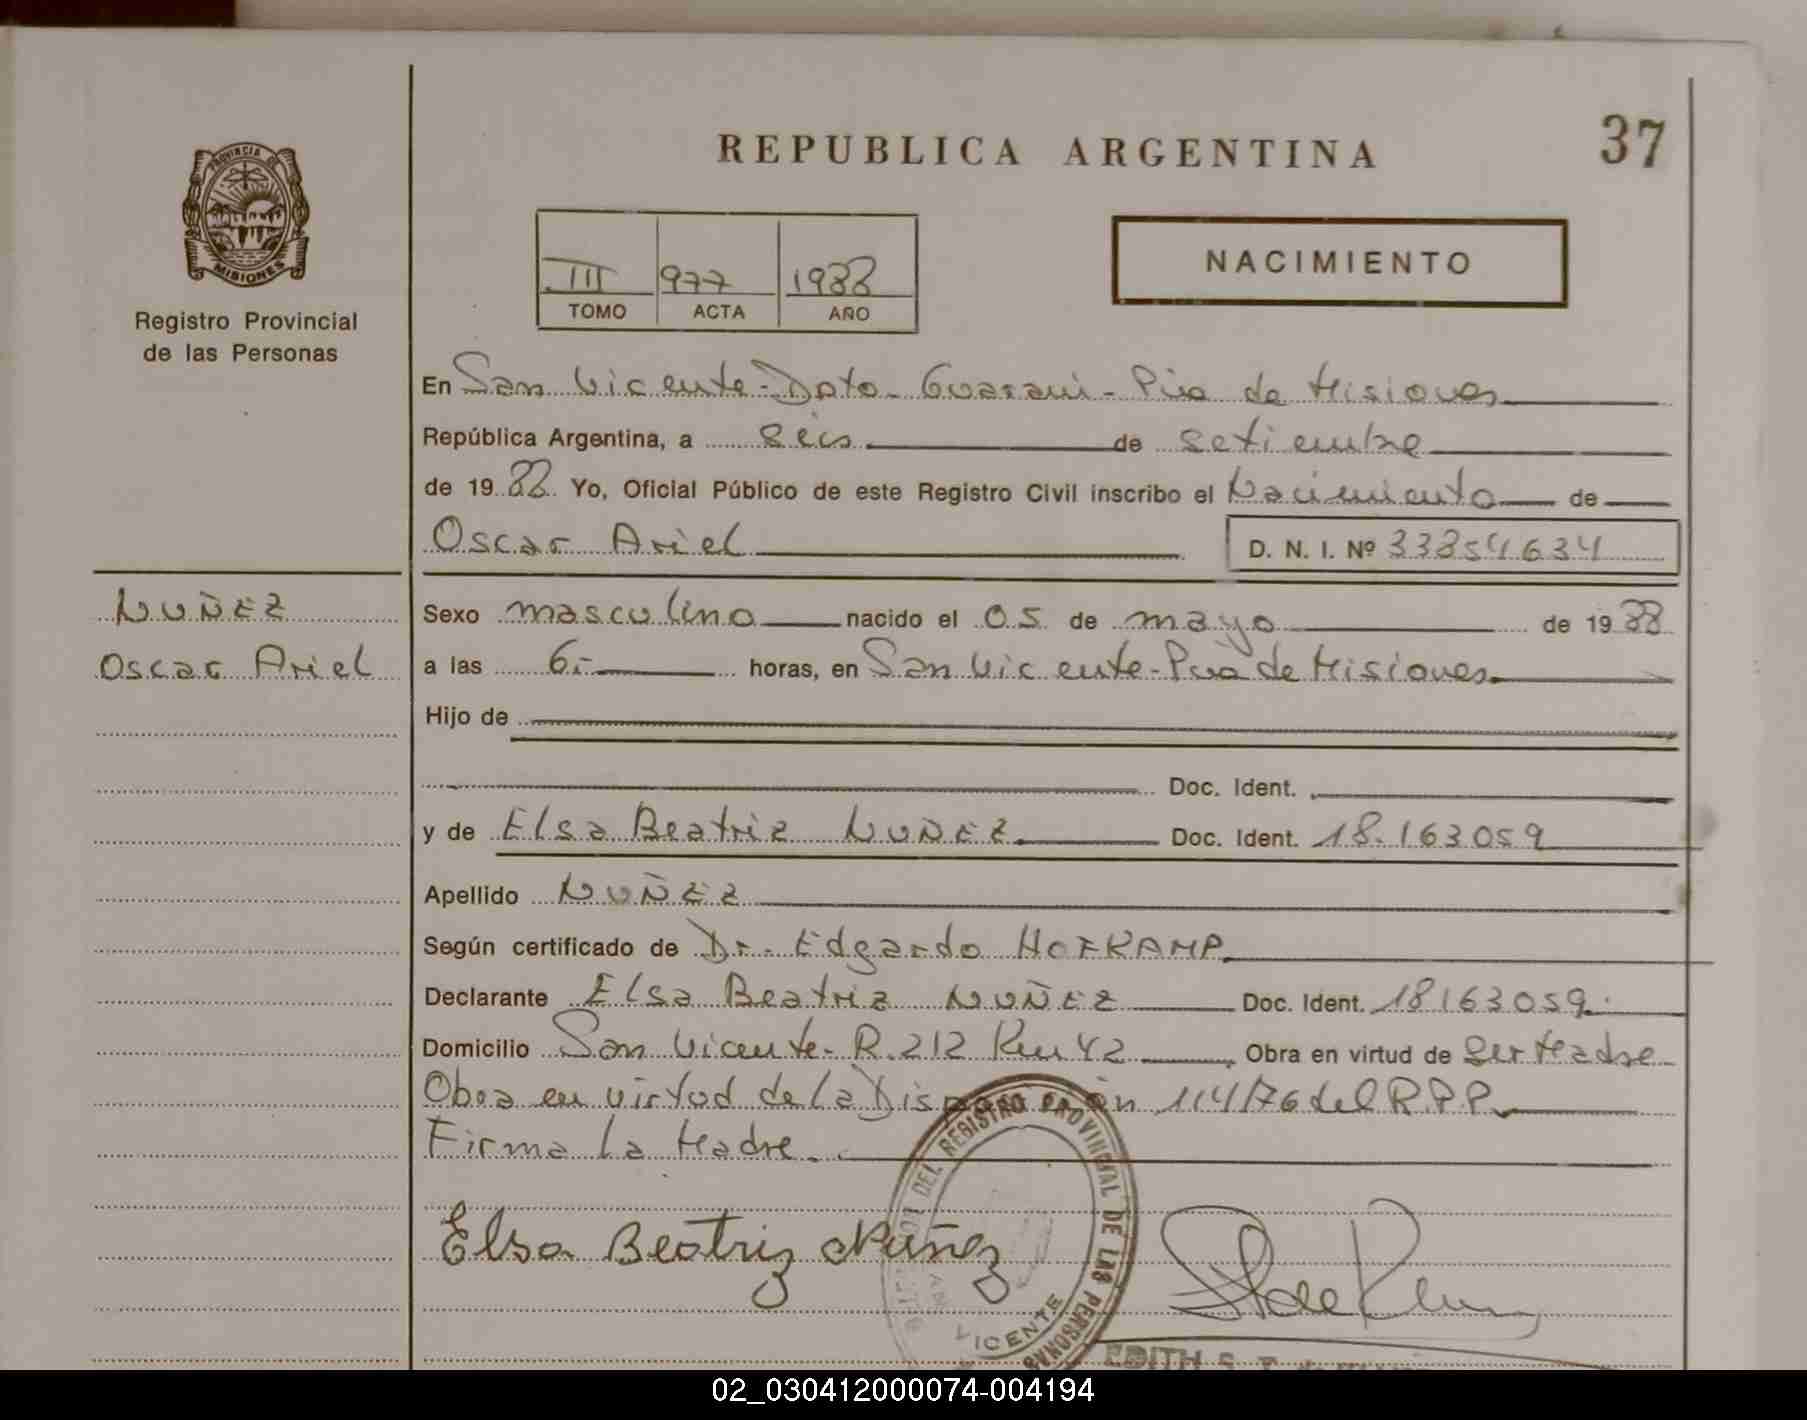 REPUBLICA ARGENTINA
37
PROVINCIA DE
MISIONES
Registro Provincial
de las Personas
III 977 1988
TOMO ACTA AÑO
NACIMIENTO
En San Vicente - Dpto. Guarani - Pcia de Misiones
República Argentina, a seis de setiembre
de 1988 Yo, Oficial Público de este Registro Civil inscribo el Nacimiento de
Oscar Ariel D. N. I. Nº 33854634
NUÑEZ
Oscar Ariel
Sexo masculino nacido el 05 de mayo de 1988
a las 6.- horas, en San Vicente - Pcia de Misiones
Hijo de
Doc. Ident.
y de Elsa Beatriz NUÑEZ Doc. Ident. 18.163059
Apellido NUÑEZ
Según certificado de Dr. Edgardo HOFKAMP
Declarante Elsa Beatriz NUÑEZ Doc. Ident. 18163059.
Domicilio San Vicente - R. 212 Km 42 Obra en virtud de ser Madre
Obra en virtud de la Disposición 114/76 del R.P.P.
Firma la Madre.
Elsa Beatriz Nuñez
DEL REGISTRO PROVINCIAL DE LAS PERSONAS
VICENTE
EDITH S.
02_030412000074-004194